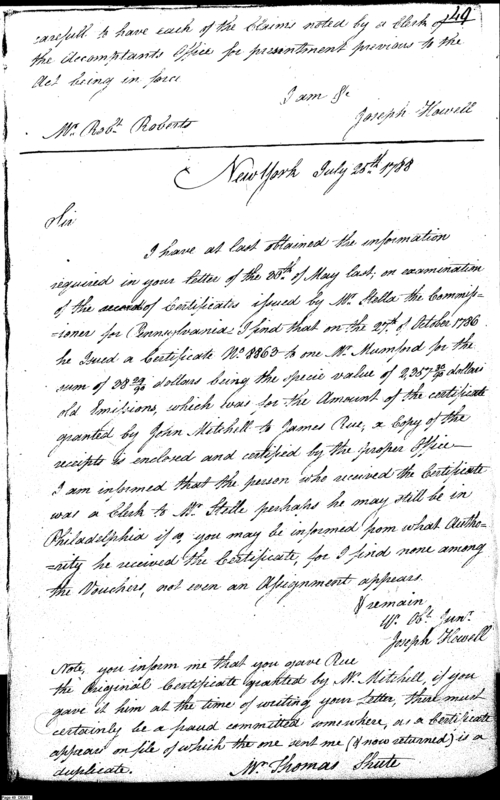 49
carefull to have each of the Claims noted by a Clerk of
the Accomptants Office for presentment previous to the
Act being in force
I am &c
Joseph Howell
Mr. Robt. Roberts
New York July 25th. 1788
Sir
I have at last obtained the information
required in your letter of the 28th. of May last, on examination
of the record of Certificates issued by Mr. Stelle the Commiss-
=ioner for Pennsylvania I find that on the 27th. of October 1786
he Issued a Certificate No. 8863 to one Mr. Mumford for the
sum of dollars being the specie value of dollars
old Emissions, which was for the Amount of the certificate
granted by John Mitchell to James Rue, a Copy of the
receipts is enclosed and certified by the proper Office
I am informed that the person who received the Certificate
was a Clerk to Mr. Stelle perhaps he may still be in
Philadelphia if so, you may be informed from what Autho-
=rity he received the Certificate, for I find none among
the Vouchers, not even an Assignment appears.
I remain
Yr. Obt. Servt.
Joseph Howell
Note, you inform me that you gave Rue
the Original Certificate granted by Mr. Mitchell, if you
gave it him at the time of writing your Letter, there must
certainly be a fraud committed somewhere, as a Certificate
appears on file of which the one sent me (& now returned) is a
duplicate.
Mr. Thomas Shute